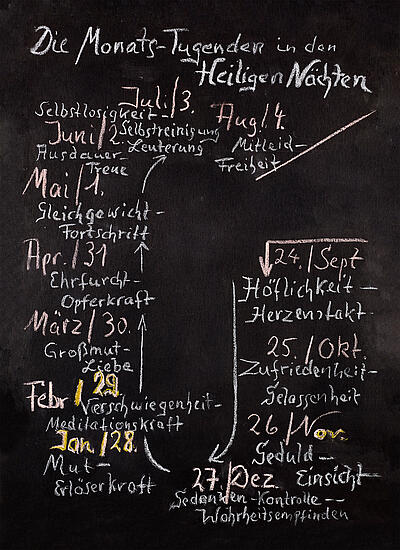 Die Monats-Tugenden in den
Heiligen Nächten
Juli/3.
Selbstlosigkeit-
Selbstreinigung
Leuterung
Aug/4.
Mitleid-
Freiheit
Juni/2.
Ausdauer-
Treue
Mai/1.
Gleichgewicht-
Fortschritt
Apr./31
Ehrfurcht-
Opferkraft
März/30.
Großmut-
Liebe
Febr/29.
Verschwiegenheit-
Meditationskraft
Jan/28.
Mut-
Erlöserkraft
24./Sept
Höflichkeit-
Herzenstakt
25./Okt.
Zufriedenheit-
Gelassenheit
26/Nov.
Geduld-
Einsicht
27./Dez
Gedanken-Kontrolle--
Wahrheitsempfinden